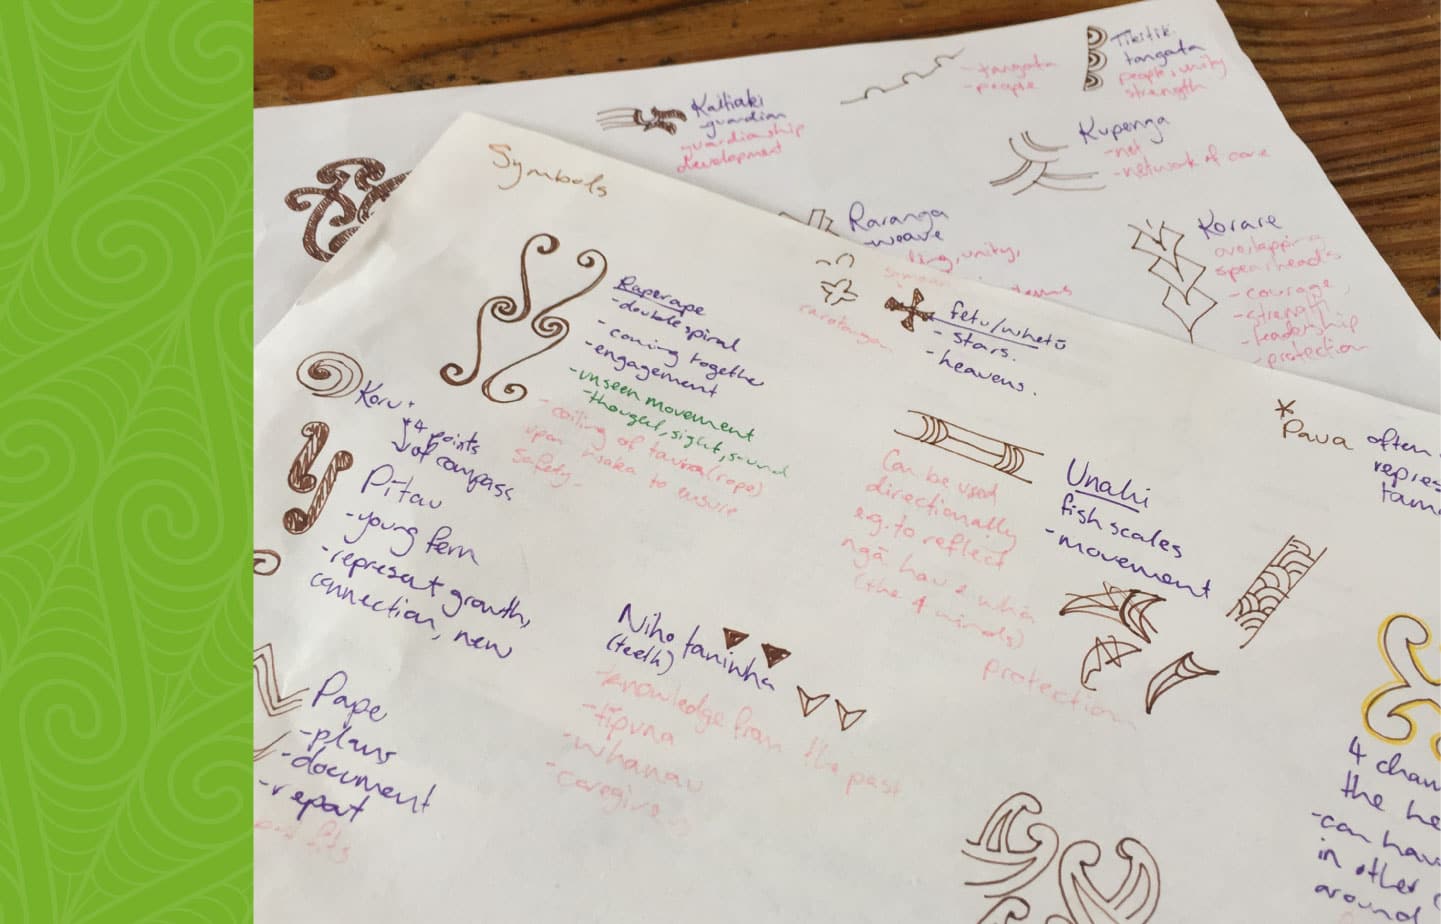 Tikitik
tangata
people, unity
strength
- tangata
- people
Kaitiaki
- guardian
guardianship
development
Kupenga
- net
- network of care
Raranga
- weave
unity,
Korare
overlapping
spearheads
- courage,
- strength
- leadership
- protection
Symbols
Raperape
- double spiral
- coming together
- engagement
- unseen movement
- thought, sight, sound
- coiling of taura (rope)
upon waka to ensure
safety.
rarotongan
fetu/whetū
- stars.
- heavens.
Koru
4 points
of compass
Pitau
- young fern
- represent growth,
connection, new
Can be used
directionally
e.g. to reflect
ngā hau e whā
(the 4 winds)
Unahi
fish scales
- movement
protection
* Paua often
Niho taninha
(teeth)
- knowledge from the past
- tipuna
- whanau
- caregivers
Pape
- plans
- document
- report
4
the
- can
in other
around